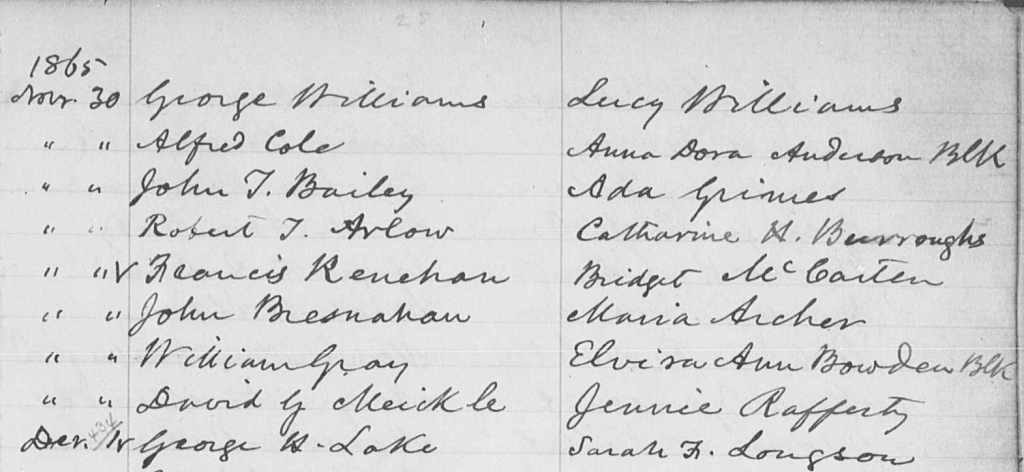 1865
Nov. 30 George Williams Lucy Williams
" " Alfred Cole Anna Dora Anderson Blk
" " John T. Bailey Ada Grimes
" " Robert T. Arlow Catharine H. Burroughs
" " Francis Renehan Bridget McCarten
" " John Bresnahan Maria Archer
" " William Gray Elvira Ann Bowden Blk
" " David G Meickle Jennie Rafferty
Dec. George H. Lake Sarah F. Longson